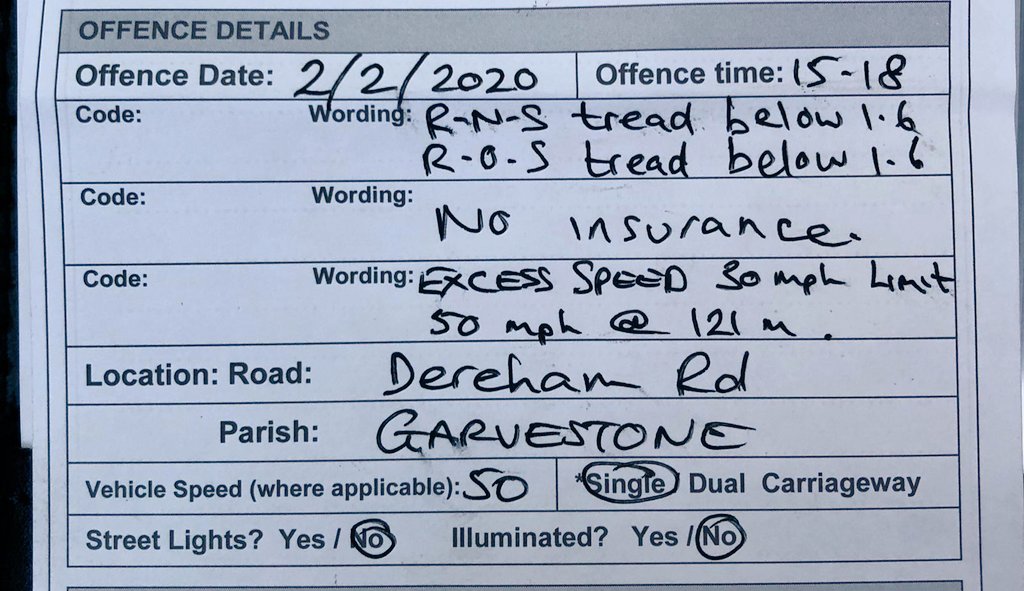 OFFENCE DETAILS
Offence Date: 2/2/2020 Offence time: 15-18
Code: Wording: R-N-S tread below 1.6
R-O-S tread below 1.6
Code: Wording:
No insurance.
Code: Wording: EXCESS SPEED 30 mph Limit
50 mph @ 121 m.
Location: Road: Dereham Rd
Parish: GARVESTONE
Vehicle Speed (where applicable): 50 *Single Dual Carriageway
Street Lights? Yes / No Illuminated? Yes / No